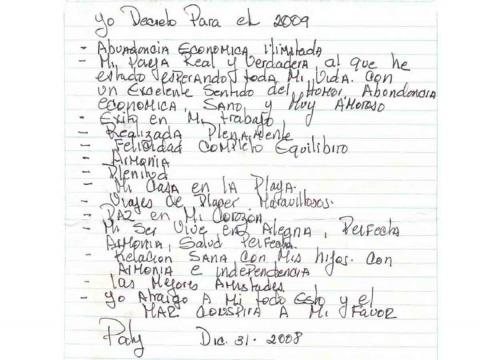 Yo Decreto Para el 2009
- Abundancia Economica ilimitada
- Mi Pareja Real y Verdadera al que he
estado esperando toda Mi Vida. con
un Excelente Sentido del Humor, Abundancia
economica, Sano, y Muy Amoroso
- Exito en Mi trabajo
- Realizada Plenamente
- Felicidad Completo Equilibrio
- Armonia
- Plenitud
- Mi Casa en la Playa.
- Viajes de Placer Maravillosos.
- PAZ en Mi Corazon
- Mi Ser Vive en Alegria, Perfecta
Armonia, Salud Perfecta.
- Relacion Sana con Mis hijos. con
Armonia e independencia
- las Mejores Amistades
- yo Atraigo A Mi todo Esto y el
MAR Conspira A Mi Favor
Dic. 31. 2008